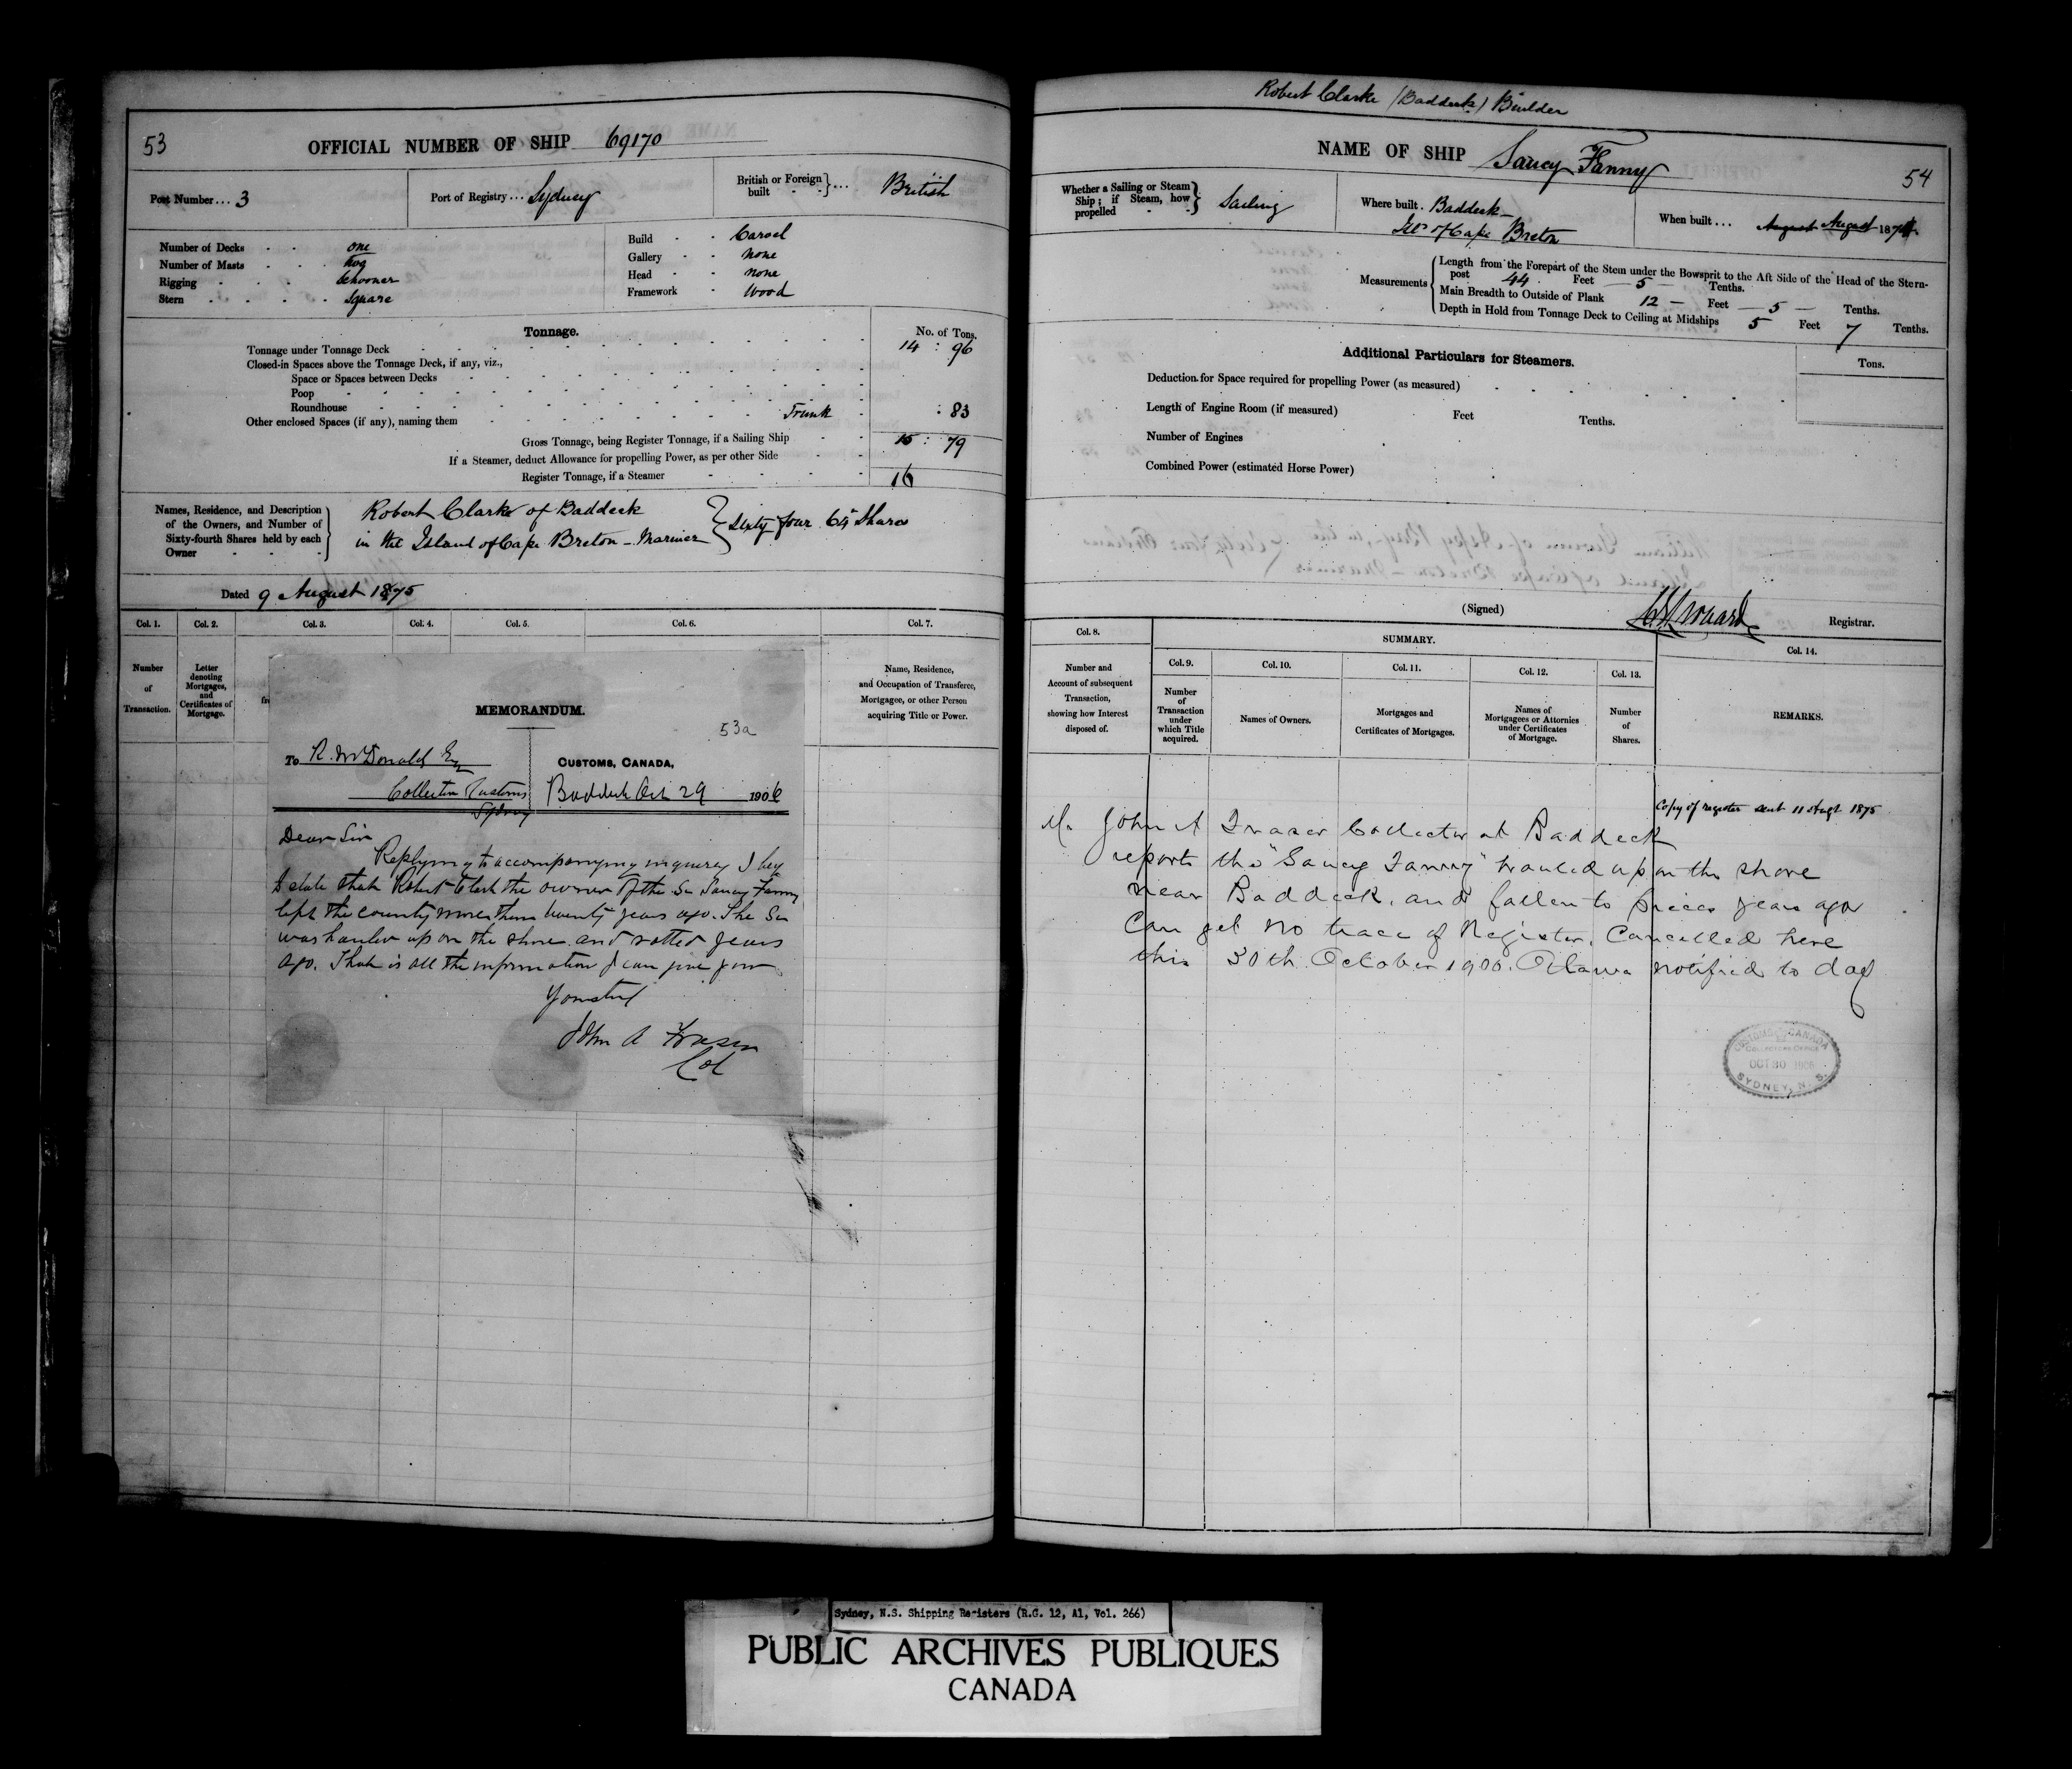 53
OFFICIAL NUMBER OF SHIP 69170
Port Number... 3
Port of Registry... Sydney
British or Foreign built } ... British
Number of Decks - - one
Number of Masts - - Two
Rigging - - - Schooner
Stern - - - - Square
Build - - Carvel
Gallery - - none
Head - - none
Framework - Wood
Tonnage.
No. of Tons.
Tonnage under Tonnage Deck 14 : 96
Closed-in Spaces above the Tonnage Deck, if any, viz.,
Space or Spaces between Decks
Poop
Roundhouse
Other enclosed Spaces (if any), naming them Trunk : 83
Gross Tonnage, being Register Tonnage, if a Sailing Ship 15 : 79
If a Steamer, deduct Allowance for propelling Power, as per other Side
Register Tonnage, if a Steamer 16
Names, Residence, and Description of the Owners, and Number of Sixty-fourth Shares held by each Owner
Robert Clarke of Baddeck
in the Island of Cape Breton - Mariner } Sixty four 64 Shares
Dated 9 August 1875
Col. 1. Col. 2. Col. 3. Col. 4. Col. 5. Col. 6. Col. 7.
Number of Transaction.
Letter denoting Mortgages, and Certificates of Mortgage.
fr
Name, Residence, and Occupation of Transferee, Mortgagee, or other Person acquiring Title or Power.
MEMORANDUM.
53a
To R. McDonald Esq
Collector Customs
Sydney
CUSTOMS, CANADA,
Baddeck Oct 29 1906
Dear Sir
Replying to accompanying inquirey I beg
to state that Robert Clark the owner of the Sr Saucy Fanny
left the county more than twenty years ago. The Sr
was hauled up on the shore and rotted years
ago. That is all the information I can give you
Yours truly
John A Fraser
Col
Robert Clarke (Baddeck) Builder
NAME OF SHIP Saucy Fanny
54
Whether a Sailing or Steam Ship; if Steam, how propelled } Sailing
Where built. Baddeck -
Isld of Cape Breton
When built... August August 187
Measurements
Length from the Forepart of the Stem under the Bowsprit to the Aft Side of the Head of the Stern-
post 44 Feet 5 Tenths.
Main Breadth to Outside of Plank 12 - Feet - 5 - Tenths.
Depth in Hold from Tonnage Deck to Ceiling at Midships 5 Feet 7 Tenths.
Additional Particulars for Steamers.
Tons.
Deduction for Space required for propelling Power (as measured)
Length of Engine Room (if measured) Feet Tenths.
Number of Engines
Combined Power (estimated Horse Power)
(Signed) Registrar.
Col. 8. SUMMARY. Col. 14.
Col. 9. Col. 10. Col. 11. Col. 12. Col. 13.
Number and Account of subsequent Transaction, showing how Interest disposed of.
Number of Transaction under which Title acquired.
Names of Owners.
Mortgages and Certificates of Mortgages.
Names of Mortgagees or Attornies under Certificates of Mortgage.
Number of Shares.
REMARKS.
Copy of register sent 11 Augt 1875
Mr John A Fraser Collector at Baddeck
reports the "Saucy Fanny" hauled up on the shore
near Baddeck, and fallen to pieces years ago
Can get no trace of Register. Cancelled here
this 30th October 1906. Ottawa notified to day
CUSTOMS CANADA
COLLECTORS OFFICE
OCT 30 1906
SYDNEY, N. S.
Sydney, N.S. Shipping Registers (R.G. 12, A1, Vol. 266)
PUBLIC ARCHIVES PUBLIQUES
CANADA